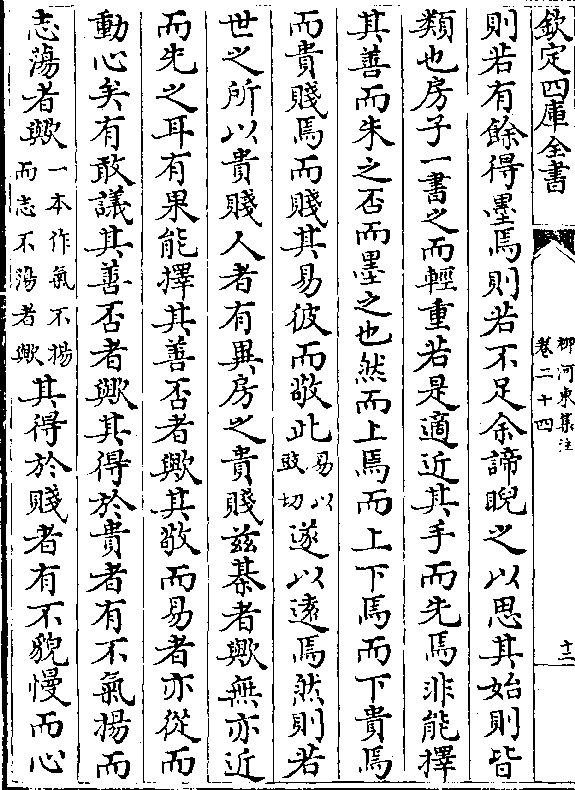 欽定四庫全書
柳河東集注
卷二十四
十二
則若有餘得墨焉則若不足余諦睨之以思其始則皆
類也房子一書之而輕重若是適近其手而先焉非能擇
其善而朱之否而墨之也然而上焉而上下焉而下貴焉
而貴賤焉而賤其易彼而敬此易以豉切遂以遠焉然則若
世之所以貴賤人者有異房之貴賤兹棊者歟無亦近
而先之耳有果能擇其善否者歟其敬而易者亦從而
動心矣有敢議其善否者歟其得於貴者有不氣揚而
志蕩者歟一本作氣不揚而志不蕩者歟其得於賤者有不貌慢而心